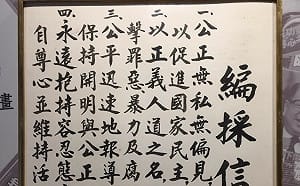 編採信
一、公正無私無偏見
以促進國家民主、
二、以正義人道之名、
擊罪惡暴力及腐
三、公平迅速地報導
保持開明與公正
四、永遠抱持容忍態
自尊心並維持活
畫